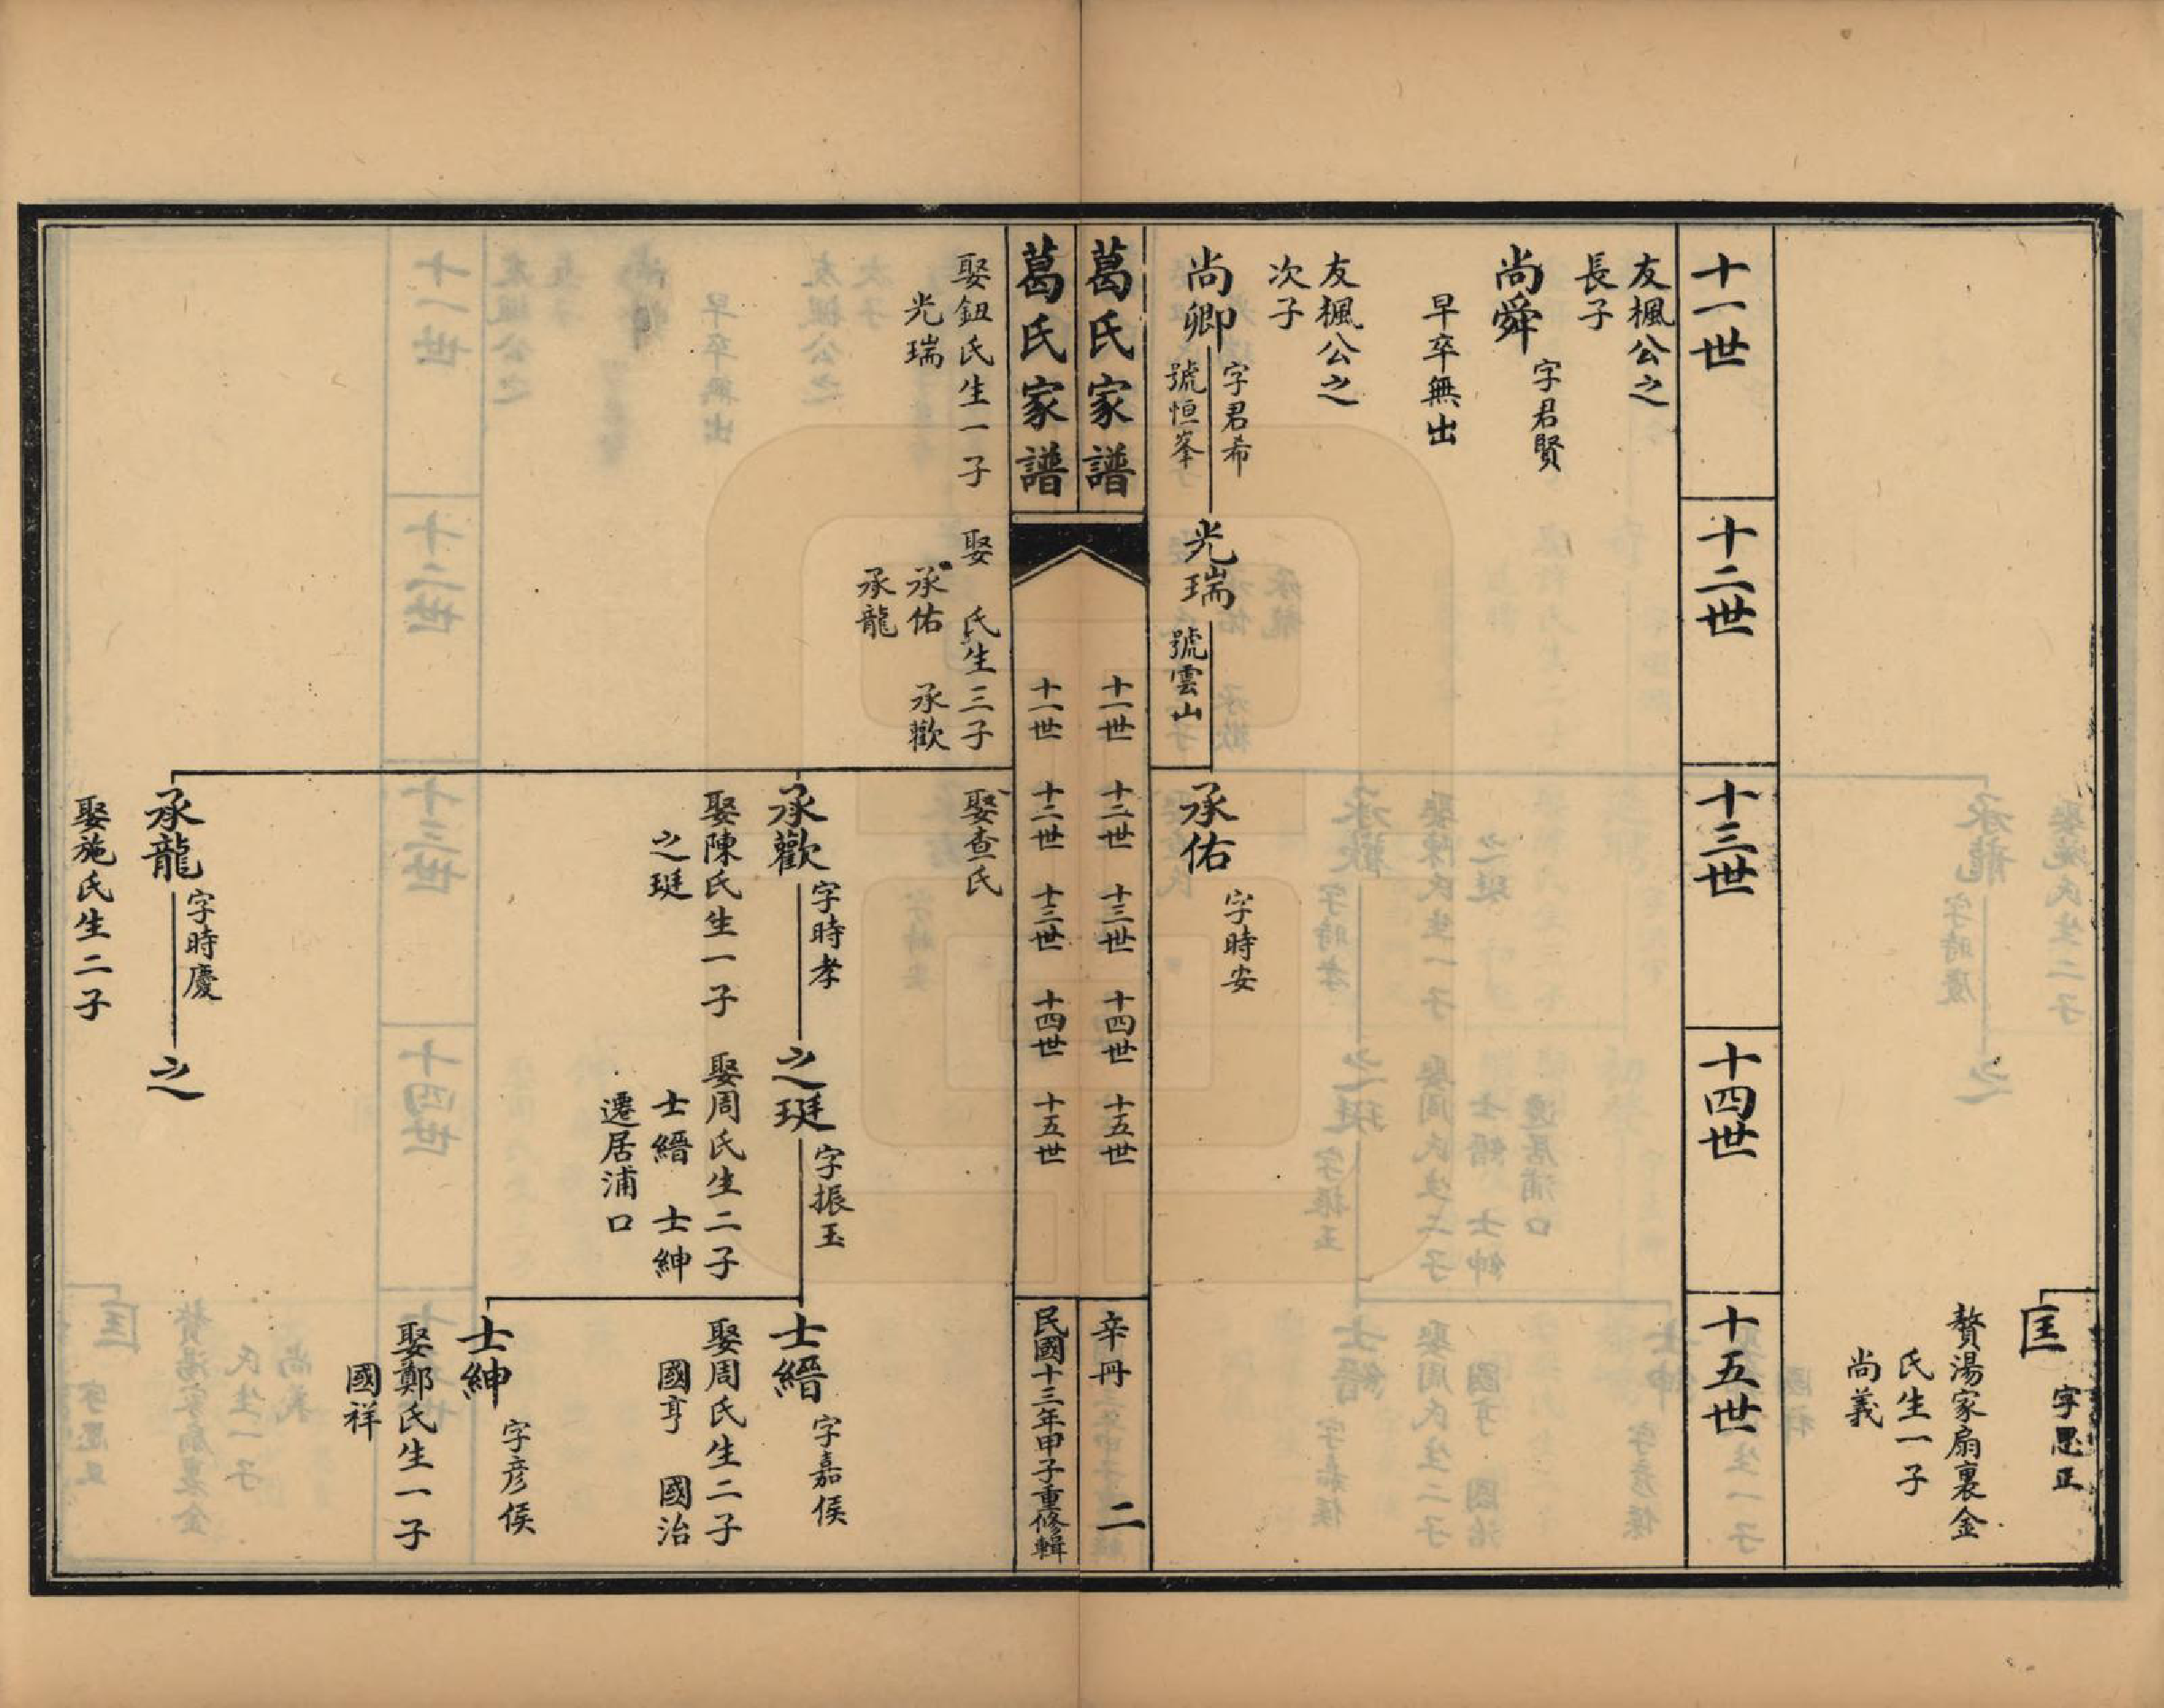 匡
字思正
贅湯家扇裏金
氏生一子
尚義
十一世
十二世
十三世
十四世
十五世
友楓公之
長子
尚舜
字君賢
早卒無出
友楓公之
次子
尚卿
字君希
號恒峯
光瑞
號雲山
承佑
字時安
葛氏家譜
十一世 十二世 十三世 十四世 十五世
辛冊
二
葛氏家譜
十一世 十二世 十三世 十四世 十五世
民國十三年甲子重修輯
娶鈕氏生一子
光瑞
娶 氏生三子
承佑 承歡
承龍
娶查氏
承歡
字時孝
娶陳氏生一子
之珽
之珽
字振玉
娶周氏生二子
士縉 士紳
遷居浦口
士縉
字嘉侯
娶周氏生二子
國亨 國治
士紳
字彥侯
娶鄭氏生一子
國祥
承龍
字時慶
娶施氏生二子
之